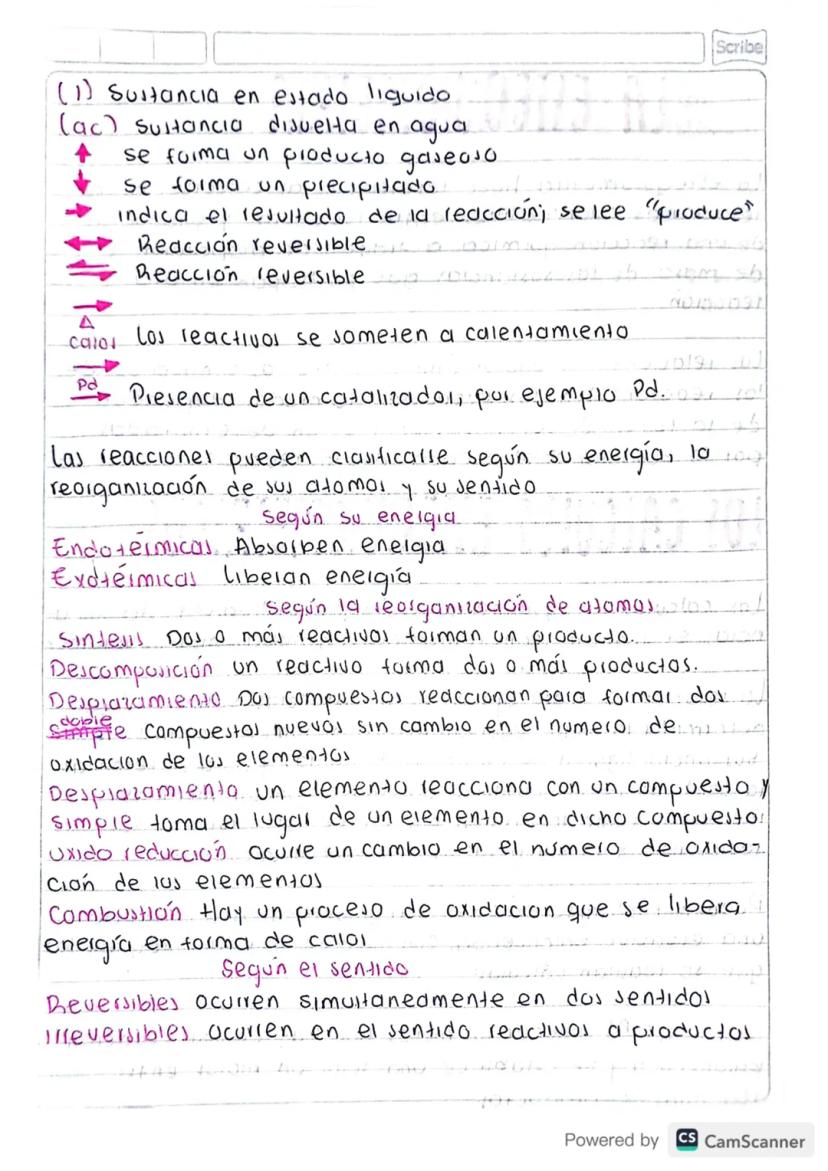 Scribe
(l) Sustancia en estado liquido
(ac) sustancia disuelta en agua
↑ se forma un producto gaseoso
↓ se forma un precipitado
→ indica el resultado de la reacción; se lee "produce"
↔ Reacción reversible
⇌ Reacción reversible
→
Δ
calor los reactivos se someten a calentamiento
→
Pd
→ Presencia de un catalizador, por ejemplo Pd.
Las reacciones pueden clasificarse según su energía, la
reorganización de sus atomos y su sentido
según su energia
Endotérmicas Absorben energia
Exotérmicas liberan energía
según la reorganización de atomos
sintesis Dos o más reactivos forman un producto.
Descomposición un reactivo forma dos o más productos.
Desplazamiento Dos compuestos reaccionan para formar dos
doble
simple compuestos nuevos sin cambio en el numero de
oxidacion de los elementos
Desplazamiento un elemento reacciona con un compuesto y
simple toma el lugar de un elemento en dicho compuesto
oxido reducción ocurre un cambio en el numero de oxida-
ción de los elementos
Combustión Hay un proceso de oxidacion que se libera
energía en forma de calor
según el sentido
Reversibles ocurren simultaneamente en dos sentidos
Irreversibles ocurren en el sentido reactivos a productos
Powered by CS CamScanner